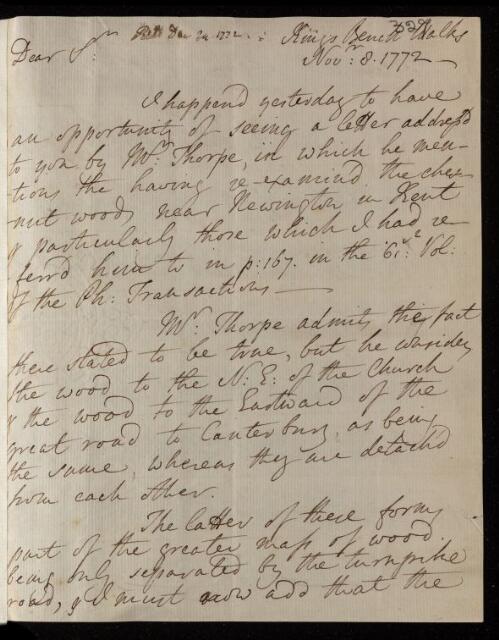 Kings Bench Walks
Dear Sr.
Novr. 8. 1772 —
I happend yesterday to have
an opportunity of seeing a letter address'd
to you by Mr. Thorpe, in which he men-
tions the having re-examind the ches-
-nut woods near Newington in Kent
& particularly those which I had re-
ferrd him to in p: 167. in the 61st. Vol:
of the Ph: Transactions —
Mr. Thorpe admits the fact
there stated to be true, but he considers
the wood to the N: E: of the Church
& the wood to the Eastward of the
great road to Canterbury, as being
the same, whereas they are detach'd
from each other.
The latter of these forms
part of the greater mass of wood
being only separated by the turnpike
road, & I must now add that the